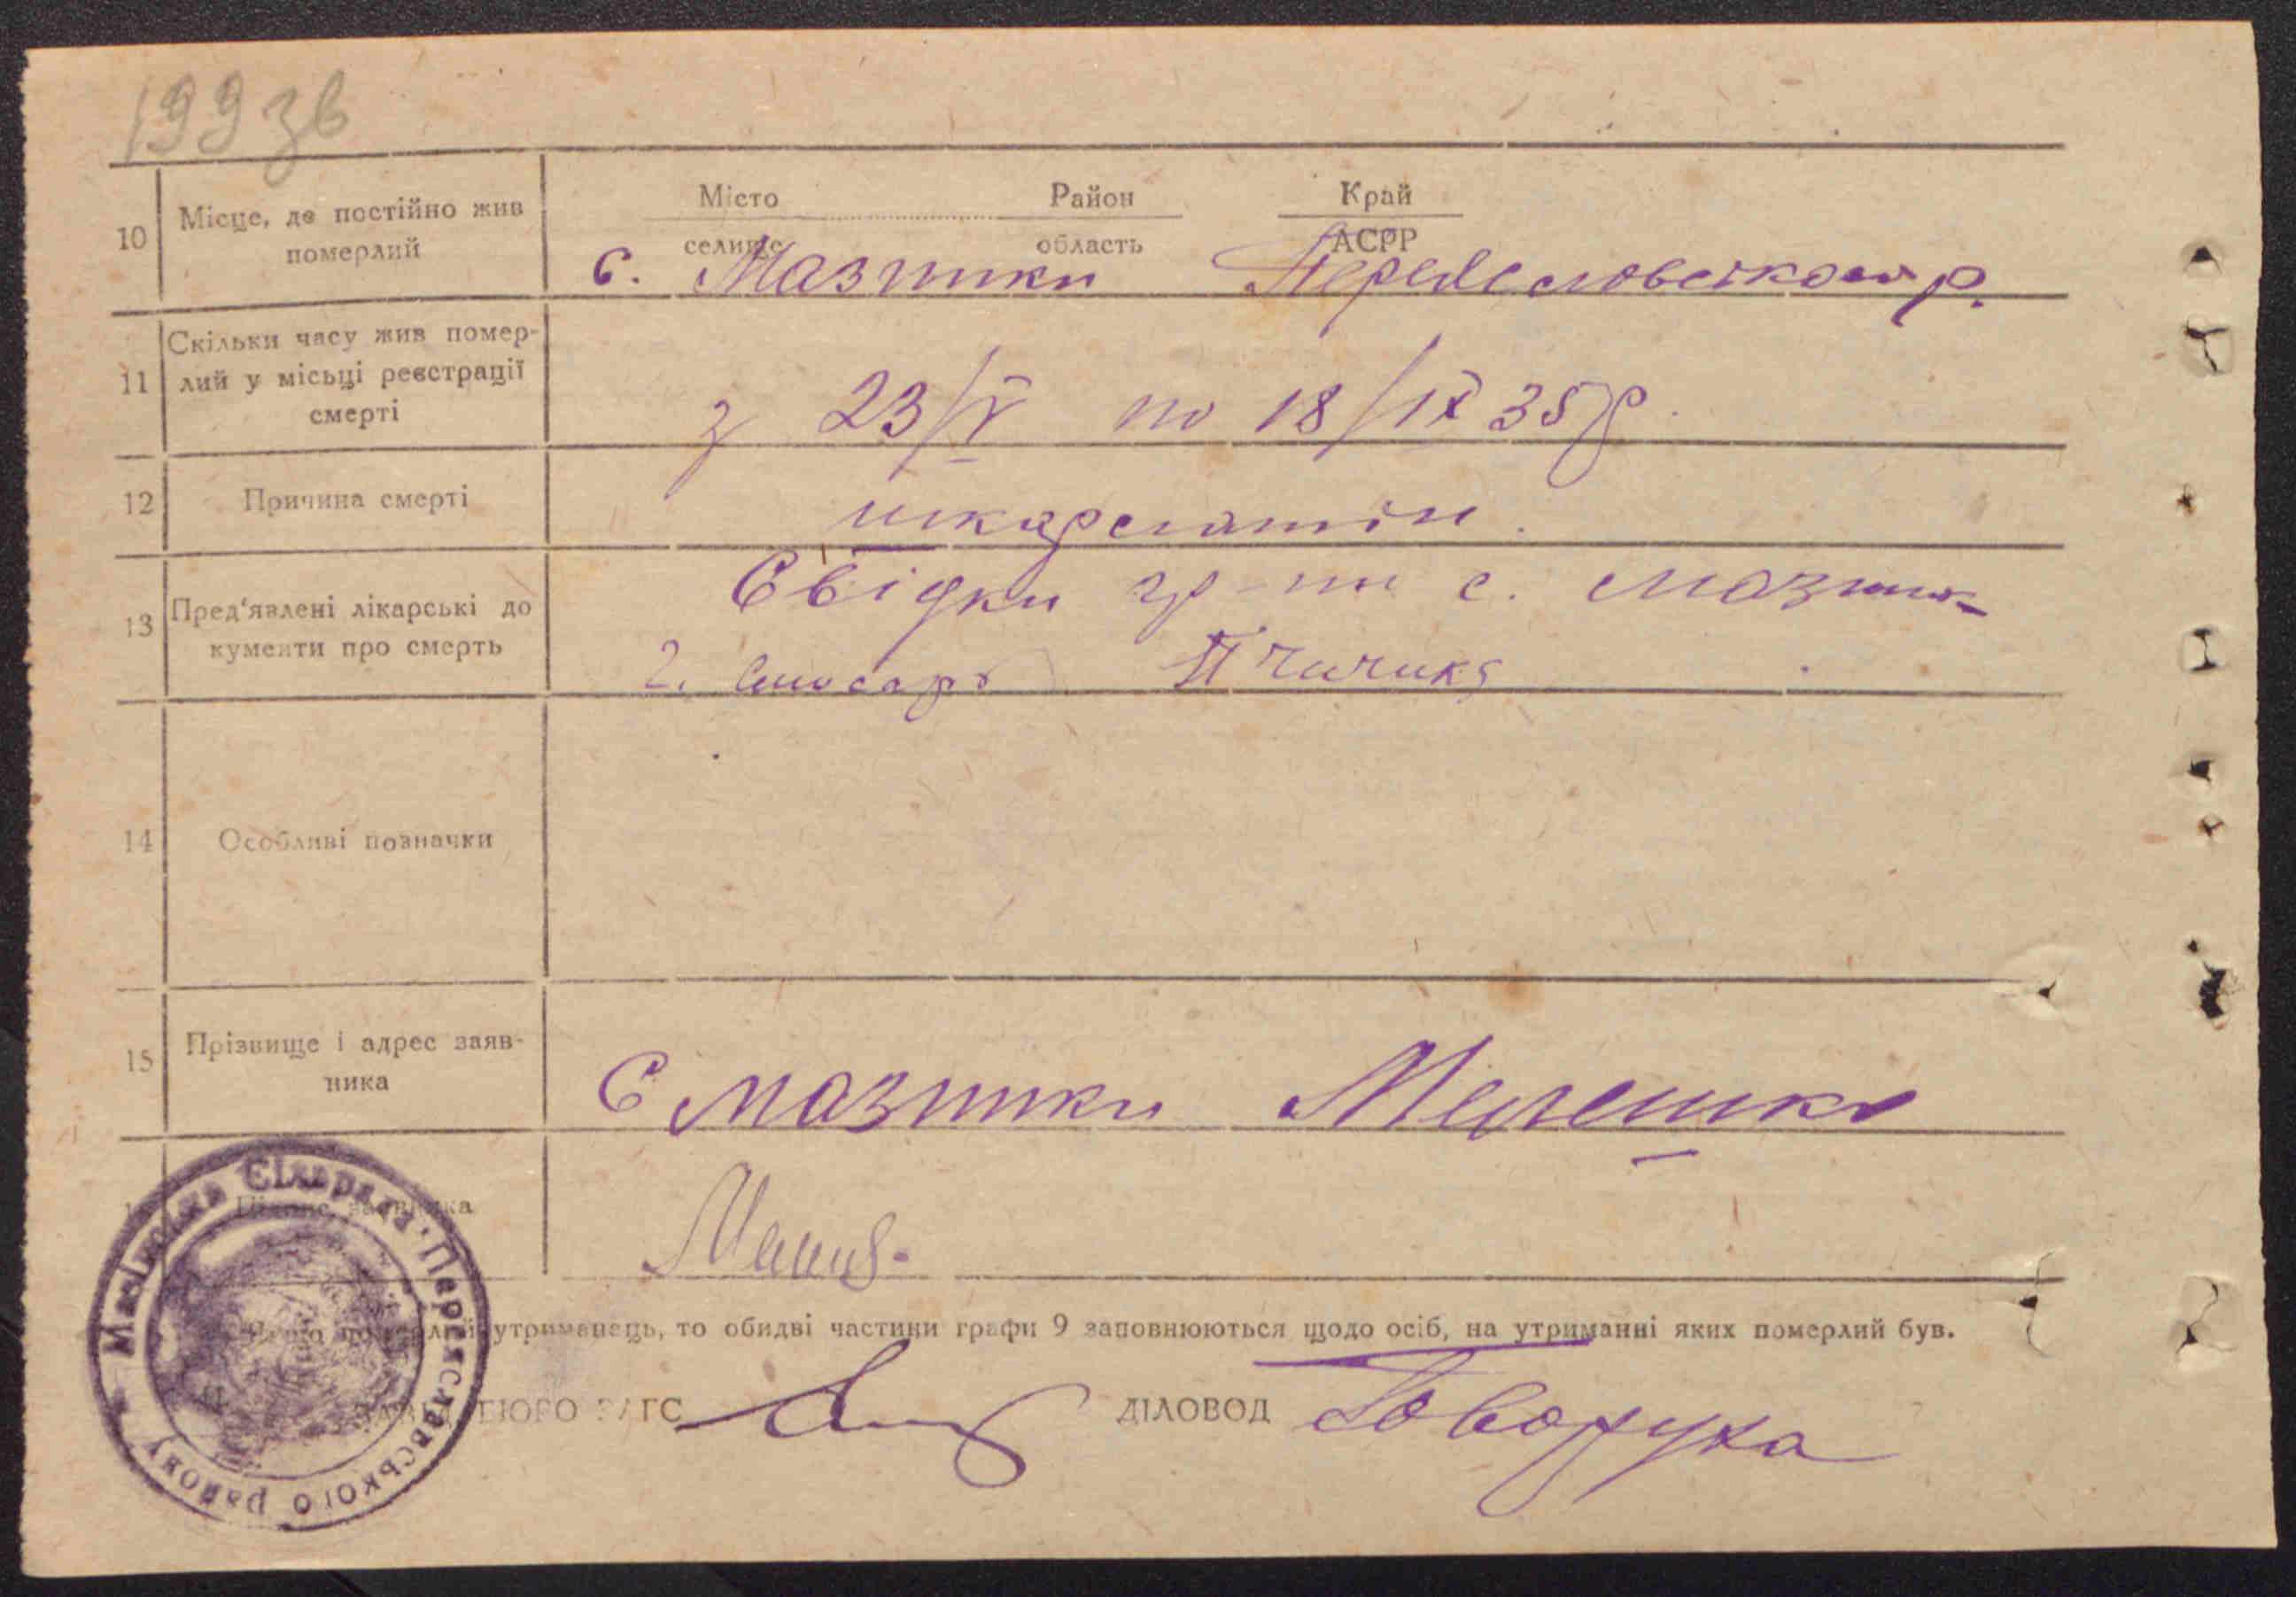 199 зв
10 Місце, де постійно жив померлий
Місто Район Край
селище область АСРР
с. Мазінки Переясловського р.
11 Скільки часу жив помер-
лий у місьці реєстрації
смерті
з 23/V по 18/IX 35 р.
12 Причина смерті
шкарлатін.
13 Пред'явлені лікарські до
кументи про смерть
Свідки гр-ни с. Мазінк
2. Слюсарь
14 Особливі позначки
15 Прізвище і адрес заяв-
ника
С Мазінки Мелешко
Підпис заявника
утриманець, то обидві частини графи 9 заповнюються щодо осіб, на утриманні яких померлий був.
БЮРО ЗАГС ДІЛОВОД Говоруха
Мазінська Сілърада Переяславського району